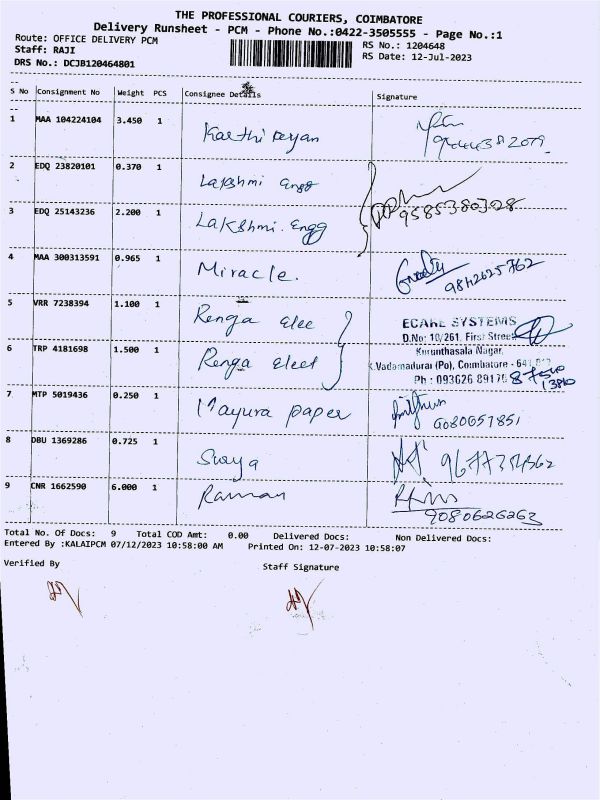 THE PROFESSIONAL COURIERS, COIMBATORE
Delivery Runsheet - PCM - Phone No.:0422-3505555 - Page No.:1
Route: OFFICE DELIVERY PCM
RS No.: 1204648
Staff: RAJI
RS Date: 12-Jul-2023
DRS No.: DCJB120464801
S No Consignment No Weight PCS Consignee Details Signature
1 MAA 104224104 3.450 1 Karthikeyan
2 EDQ 23820101 0.370 1 Lakshmi Engg
3 EDQ 25143236 2.200 1 Lakshmi. Engg 9585380328
4 MAA 300313591 0.965 1 Miracle. 9842625762
5 VRR 7238394 1.100 1 Renga Elec
ECARE SYSTEMS
D.No: 10/261, First Street
6 TRP 4181698 1.500 1 Renga Elect
Kurunthasala Nagar,
K.Vadamadurai (Po), Coimbatore - 641
Ph : 093626 89175
7 MTP 5019436 0.250 1 Mayura paper 6080657851
8 DBU 1369286 0.725 1 Surya
9 CNR 1662590 6.000 1 Raman 9080626263
Total No. Of Docs: 9 Total COD Amt: 0.00 Delivered Docs: Non Delivered Docs:
Entered By :KALAIPCM 07/12/2023 10:58:00 AM Printed On: 12-07-2023 10:58:07
Verified By Staff Signature